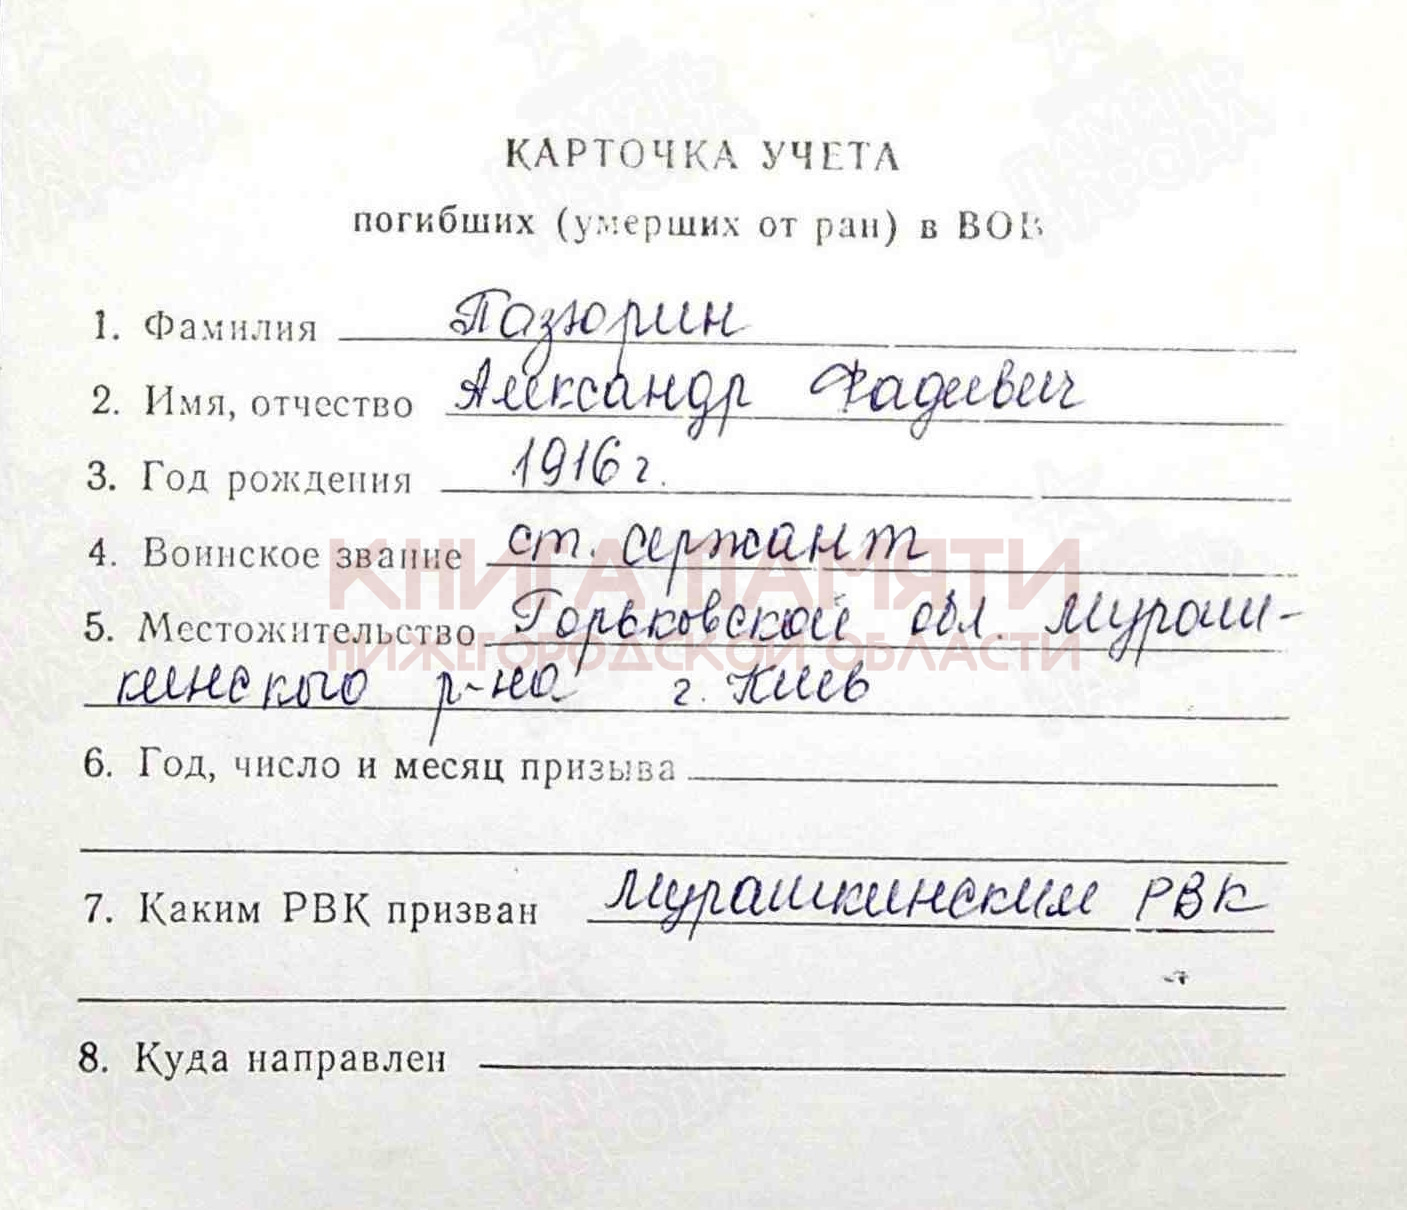 КАРТОЧКА УЧЕТА
погибших (умерших от ран) в ВОВ
1. Фамилия Пазюрин
2. Имя, отчество Александр Фадевич
3. Год рождения 1916 г.
4. Воинское звание ст. сержант
КНИГА ПАМЯТИ
5. Местожительство Горьковской обл. Мураш-
НИЖЕГОРОДСКОЙ ОБЛАСТИ
кинского р-на г. Киев
6. Год, число и месяц призыва
7. Каким РВК призван Мурашкинским РВК
8. Куда направлен